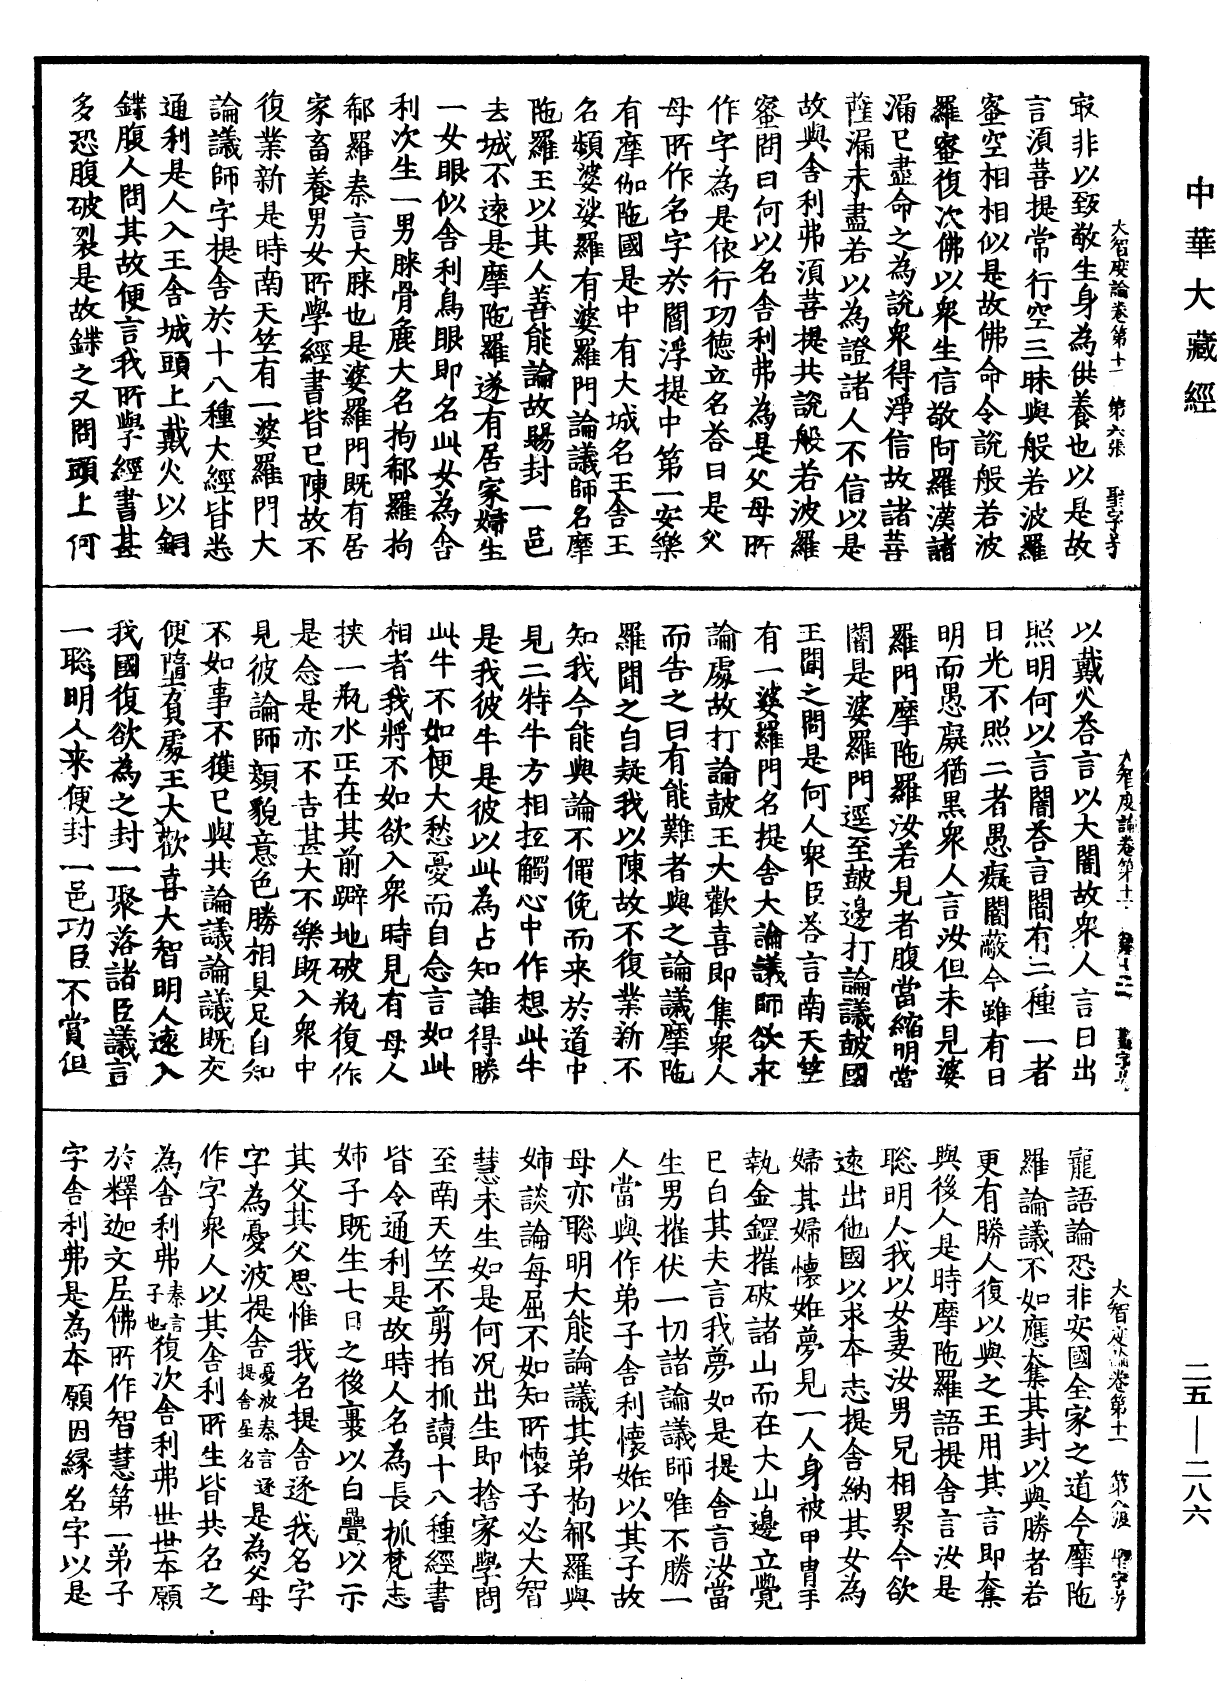 中華大藏經
大智度論卷第十一 第六張 聖字号
㝡非以致敬生身為供養也以是故
言湏菩提常行空三昧與般若波羅
蜜空相相似是故佛命令說般若波
羅蜜復次佛以衆生信敬阿羅漢諸
漏已盡命之為說衆得淨信故諸菩
薩漏未盡若以為證諸人不信以是
故與舍利弗湏菩提共說般若波羅
蜜問曰何以名舍利弗為是父母所
作字為是依行功德立名荅曰是父
母所作名字於閻浮提中第一安樂
有摩伽陁國是中有大城名王舍王
名頻婆娑羅有婆羅門論議師名摩
陁羅王以其人善能論故賜封一邑
去城不遠是摩陁羅遂有居家婦生
一女眼似舍利鳥眼即名此女為舍
利次生一男膝骨麁大名拘郗羅拘
郗羅秦言大膝也是婆羅門既有居
家畜養男女所學經書皆已陳故不
復業新是時南天竺有一婆羅門大
論議師字提舍於十八種大經皆悉
通利是人入王舍城頭上戴火以銅
鍱腹人問其故便言我所學經書甚
多恐腹破裂是故鍱之又問頭上何
大智度論卷第十一
以戴火荅言以大闇故衆人言日出
照明何以言闇荅言闇有二種一者
日光不照二者愚癡闇蔽今雖有日
明而愚癡猶黑衆人言汝但未見婆
羅門摩陁羅汝若見者腹當縮明當
闇是婆羅門逕至鼓邊打論議鼓國
王聞之問是何人衆臣荅言南天竺
有一婆羅門名提舍大論議師欲求
論處故打論鼓王大歡喜即集衆人
而告之曰有能難者與之論議摩陁
羅聞之自疑我以陳故不復業新不
知我今能與論不僶俛而来於道中
見二特牛方相抂觸心中作想此牛
是我彼牛是彼以此為占知誰得勝
此牛不如便大愁憂而自念言如此
相者我將不如欲入衆時見有母人
挟一瓶水正在其前躃地破瓶復作
是念是亦不吉甚大不樂既入衆中
見彼論師顏貌意色勝相具足自知
不如事不獲已與共論議論議既交
便墮負處王大歡喜大智明人遠入
我國復欲為之封一聚落諸臣議言
一聡明人来便封一邑功臣不賞但
大智度論卷第十一
寵語論恐非安國全家之道今摩陁
羅論議不如應奪其封以與勝者若
更有勝人復以與之王用其言即奪
與後人是時摩陁羅語提舍言汝是
聡明人我以女妻汝男兒相累今欲
遠出他國以求本志提舍納其女為
婦其婦懷姙夢見一人身被甲冑手
執金鋥摧破諸山而在大山邊立覺
已白其夫言我夢如是提舍言汝當
生男摧伏一切諸論議師唯不勝一
人當與作弟子舍利懷姙以其子故
母亦聡明大能論議其弟拘郗羅與
姉談論每屈不如知所懷子必大智
慧未生如是何況出生即捨家學問
至南天竺不剪指抓讀十八種經書
皆令通利是故時人名為長抓梵志
姉子既生七日之後裹以白㲲以示
其父其父思惟我名提舍逐我名字
字為憂波提舍憂波秦言逐提舍星名是為父母
作字衆人以其舍利所生皆共名之
為舍利弗秦言子也復次舍利弗世世本願
於釋迦文尼佛所作智慧第一弟子
字舍利弗是為本願因緣名字以是
二五—二八六